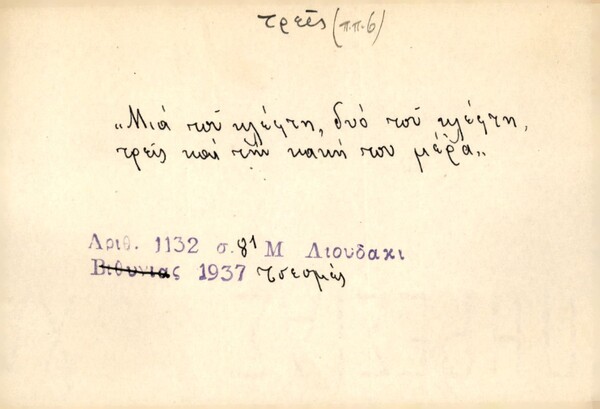 τρεῖς (π.π.6)
„Μιά τοῦ κλέφτη, δυό τοῦ κλέφτη,
τρείς καί τὴν κακή του μέρα„
Αριθ. 1132 σ. 81 Μ Λιουδακι
Βιθυνιας 1937 τσεσμές